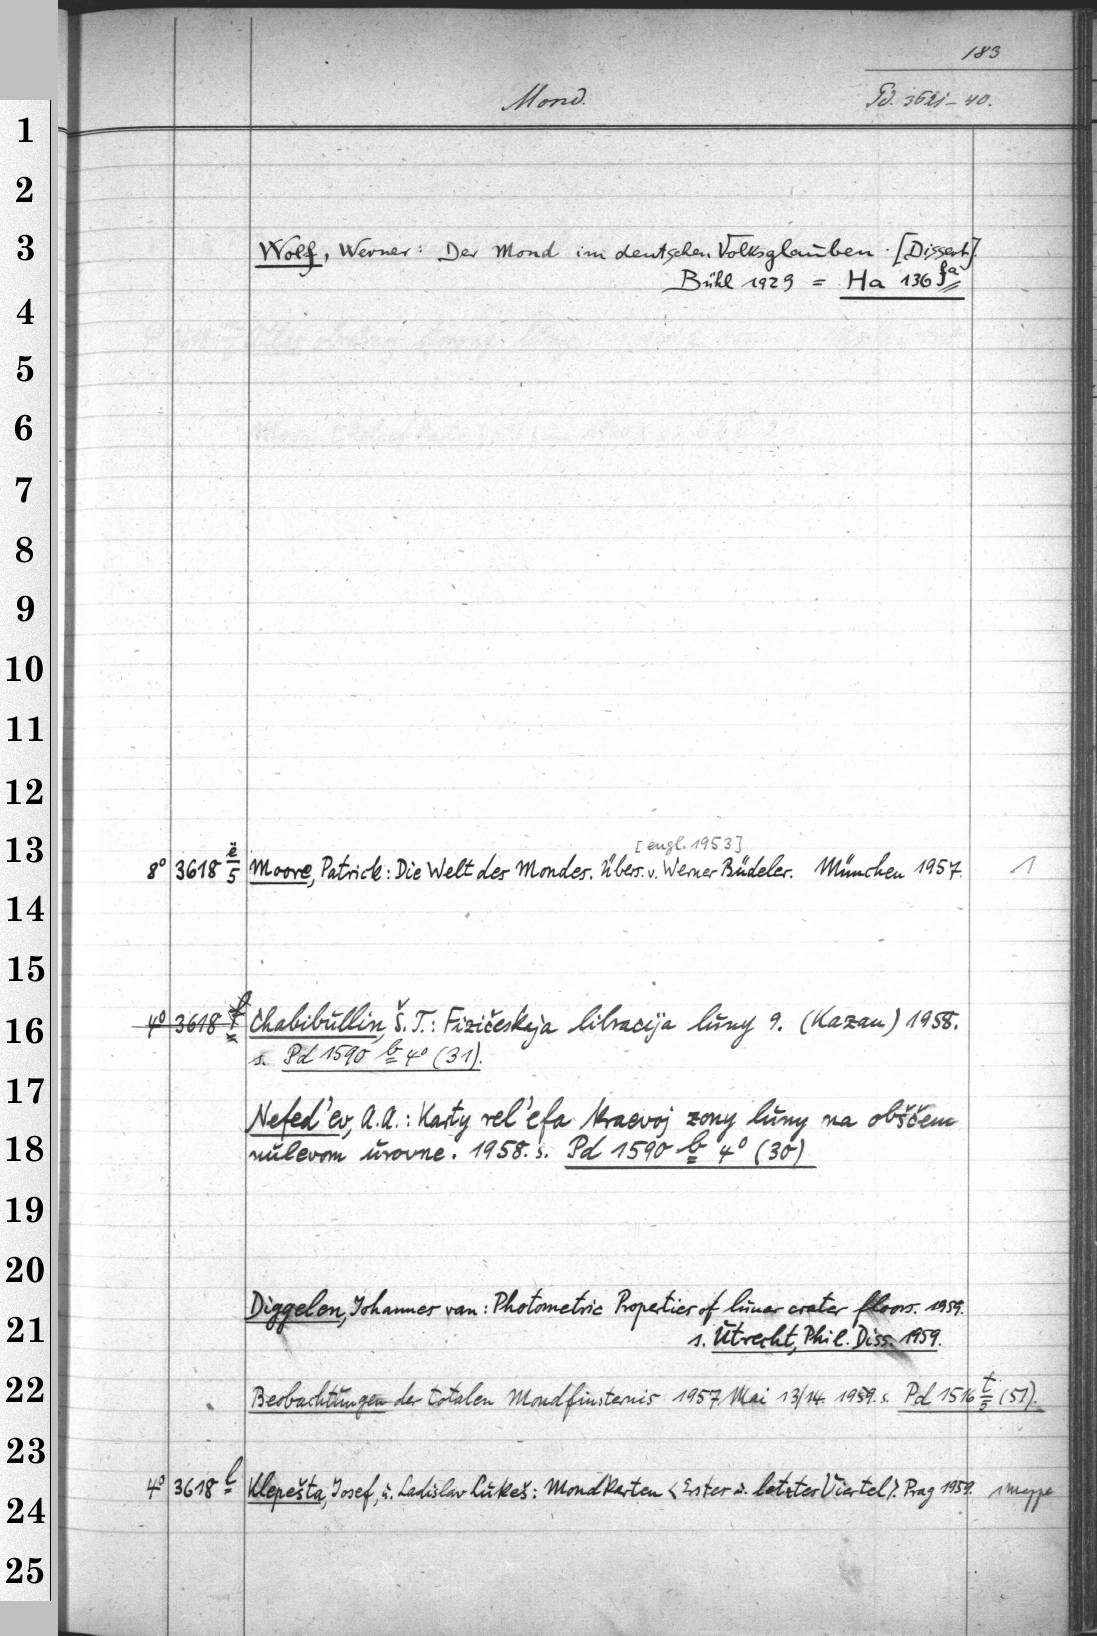 183
Mond.
Pd. 3621-40.
1
2
3
Wolf, Werner: Der Mond im deutschen Volksglauben. [Dissert.]
Bühl 1929 = Ha 136 fa
4
5
6
7
8
9
10
11
12
13
[engl. 1953]
8° 3618 ë/5 Moore, Patrick: Die Welt des Mondes. Übers. v. Werner Büdeler. München 1957. 1
14
15
16
4° 3618 Chabibullin, Š. T.: Fizičeskaja libracija luny 9. (Kazan) 1958.
s. Pd 1590 b 4° (31).
17
Nefed'ev, A. A.: Karty rel'efa kraevoj zony luny na obščem
18
nulevom urovne. 1958. s. Pd 1590 b 4° (30)
19
20
Diggelen, Johannes van: Photometric Properties of lunar crater floors. 1959.
21
s. Utrecht, Phil. Diss. 1959.
22
Beobachtungen der totalen Mondfinsternis 1957 Mai 13/14. 1959. s. Pd 1516 t/5 (51).
23
4° 3618 l Klepešta, Josef, u. Ladislav Lukeš: Mondkarten <Erster u. letzter Viertel>. Prag 1959. 1 Mappe
24
25